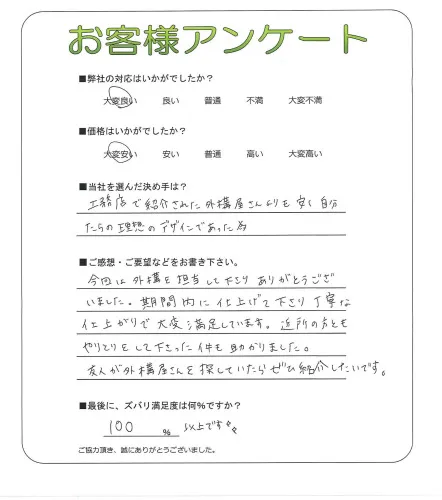 お客様アンケート
■弊社の対応はいかがでしたか?
大変良い 良い 普通 不満 大変不満
■価格はいかがでしたか?
大変安い 安い 普通 高い 大変高い
■当社を選んだ決め手は?
工務店で紹介された外構屋さんよりも安く自分
たちの理想のデザインであった為
■ご感想・ご要望などをお書き下さい。
今回は外構を担当して下さりありがとうござ
いました。期間内に仕上げて下さり丁寧な
仕上がりで大変満足しています。近所の方とも
やりとりをして下さった件も助かりました。
友人が外構屋さんを探していたらぜひ紹介したいです。
■最後に、ズバリ満足度は何%ですか?
100 % 以上です
ご協力頂き、誠にありがとうございました。